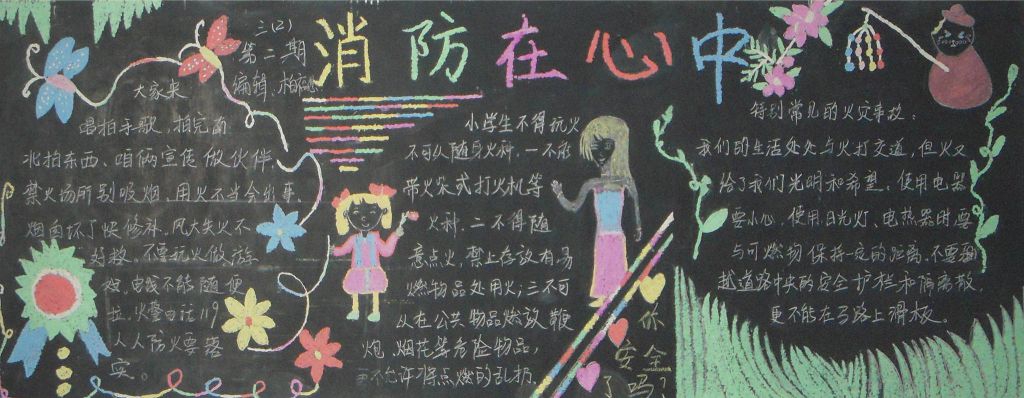 消防在心中
三(2)
第二期
编辑:柏
大家来
唱拍手歌,拍完南
北拍东西、咱俩宣传做伙伴,
禁火场所别吸烟,用火不当会出事,
烟囱坏了快修补,风大失火不
好救,不要玩火做游
戏,电线不能随便
拉,火警电话119
人人防火要落
实。
小学生不得玩火
不可以随身火种,一不能
带火柴或打火机等
火种,二不得随
意点火,禁止存放有易
燃物品处用火,三不可
以在公共物品燃放鞭
炮、烟花等危险物品,
更不允许将点燃的乱扔.
你
安全
了吗?
特别常见的火灾事故:
我们的生活处处与火打交道,但火又
给了我们光明和希望,使用电器
要小心,使用日光灯、电热器时要
与可燃物保持一定的距离,不要翻
越道路中央的安全护栏和隔离墩,
更不能在马路上滑板。